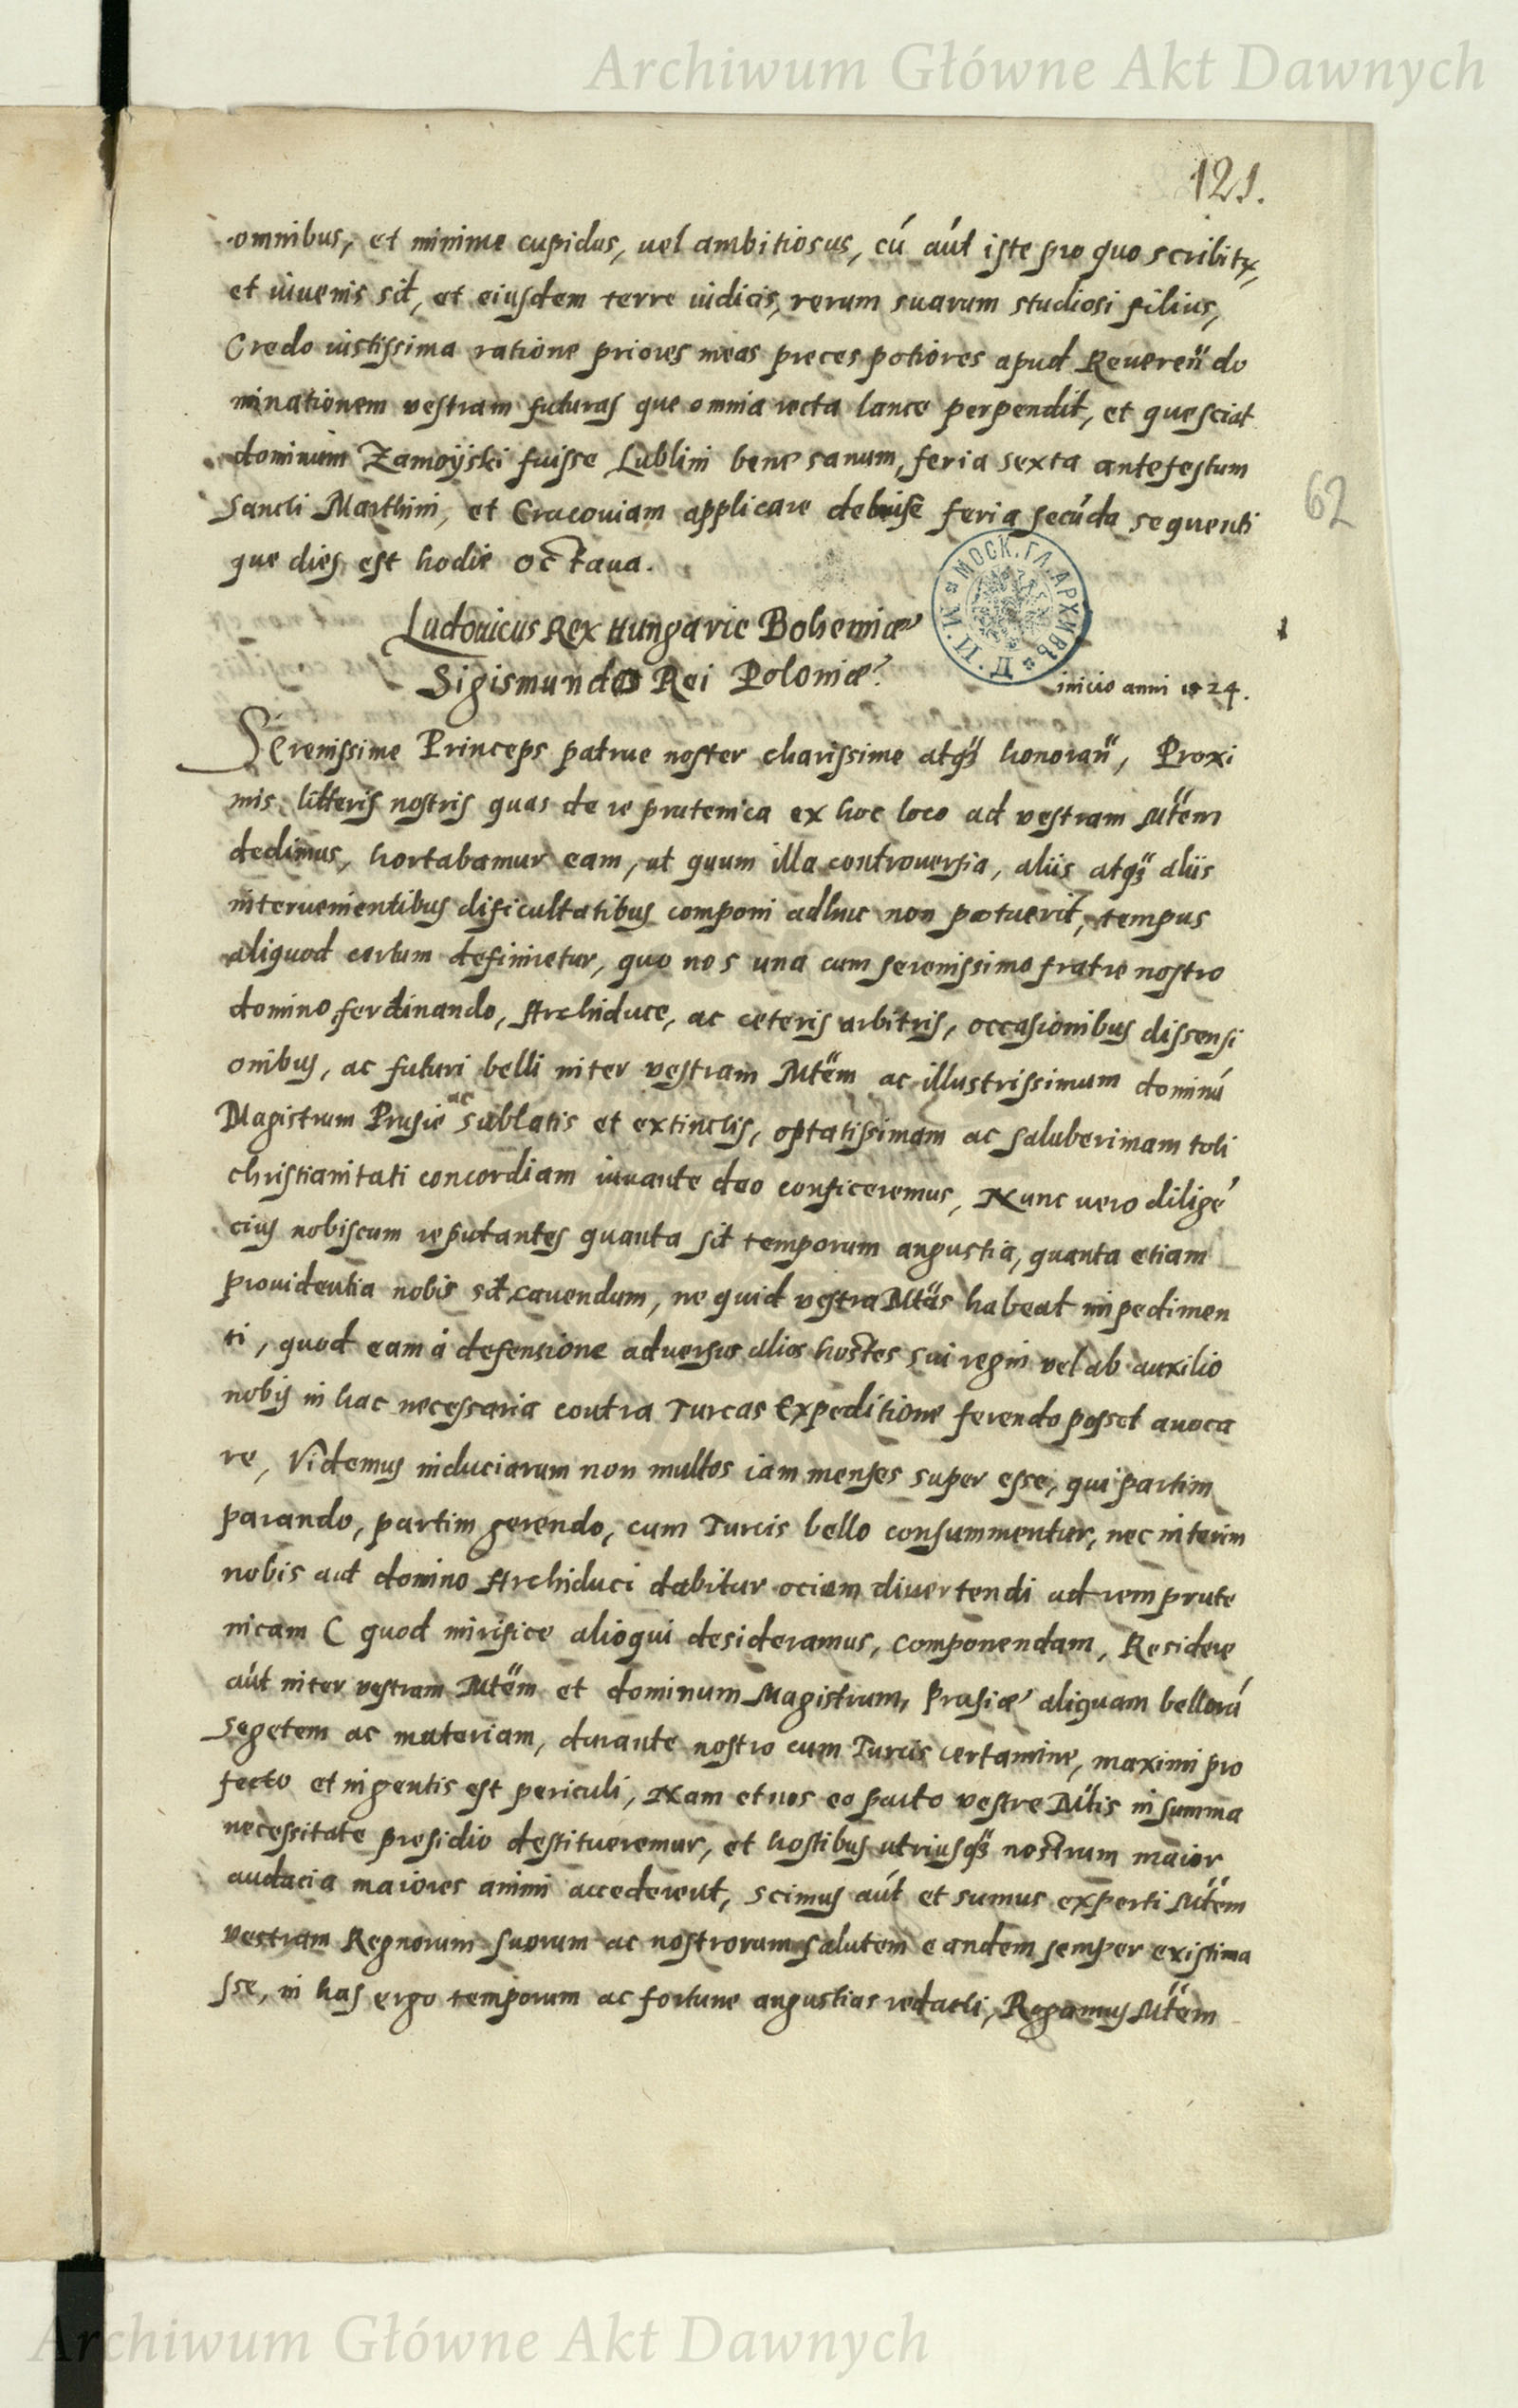 Archiwum Główne Akt Dawnych
121.
omnibus, et minime cupidus, uel ambitiosus, cú aút iste pro quo scribitr,
et iuuenis sit, et eiusdem terre iudicis, rerum suarum studiosi filius,
Credo iustissima ratione priores meas preces potiores apud Reuereñ do
minationem vestram futuras que omnia recta lance perpendit, et que sciat
dominum Zamoÿski fuisse Lublini bene sanum, feria sexta ante festum
Sancti Marthini, et Cracouiam applicare debuisse feria secúda sequenti
62
que dies est hodie octaua.
МОСК. ГЛ. АРХИВЪ
Ludouicus Rex Hungarie Bohemiæ
Sigismundo Rei Poloniæ
inicio anni 1524.
Serenissime Princeps patrue noster charissime atqꝫ honorañ, Proxi
mis litteris nostris quas de re prutenica ex hoc loco ad vestram Mtem
dedimus, hortabamur eam, ut quum illa controuersia, aliis atqꝫ aliis
interuenientibus dificultatibus componi adhuc non potuerit, tempus
aliquod certum definietur, quo nos una cum serenissimo fratre nostro
domino ferdinando, Archiduce, ac ceteris arbitris, occasionibus dissensi
onibus, ac futuri belli inter vestram Mtem ac illustrissimum dominú
Magistrum Prusie ac sublatis et extinctis, optatissimam ac saluberimam toti
christianitati concordiam iuuante deo conficeremus, Nunc uero diligé
cius nobiscum reputantes quanta sit temporum angustia, quanta etiam
prouidentia nobis sit cauendum, ne quid vestra Mtas habeat impedimen
ti, quod eam á defensione aduersus alios hostes sui regni vel ab auxilio
nobis in hac necessaria contra Turcas Expeditione ferendo posset auoca
re, Videmus induciarum non multos iam menses super esse, qui partim
parando, partim gerendo, cum Turcis bello consummentur, nec interim
nobis aut domino Archiduci dabitur ocium diuertendi ad rem prute
nicam ( quod mirifice alioqui desideramus, componendam, Residere
aút inter vestram Mtem et dominum Magistrum, Prusiæ aliquam bellorú
segetem ac materiam, durante nostro cum Turcis certamine, maximi pro
fecto et ingentis est periculi, Nam et nos eo pacto vestre Mtis in summa
necessitate presidio destitueremur, et hostibus utriusqꝫ nostrum maior
audacia maiores animi accederent, scimus aút et sumus experti Mtem
vestram Regnorum suorum ac nostrorum salutem eandem semper existima
sse, in has ergo temporum ac fortune angustias redacti, Rogamus Mtem
Archiwum Główne Akt Dawnych